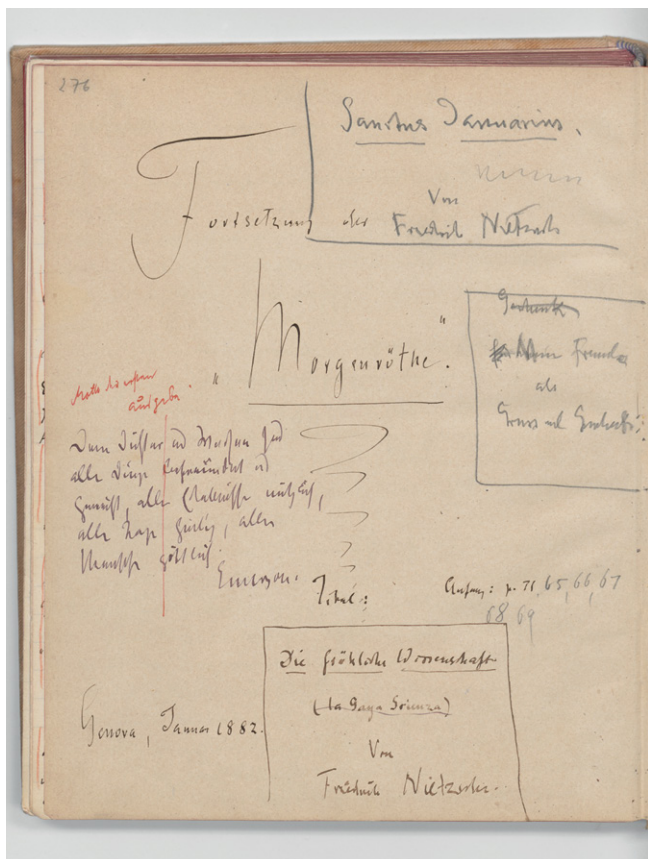 276
Sanctus Januarius.
Von
Friedrich Nietzsche
Fortsetzung der
„Morgenröthe."
Geschenk
Meine Freunde
als
Gruss und
Motto der ersten
Ausgabe.
Dem Dichter und Weisen sind
alle Dinge befreundet und
geweiht, alle Erlebnisse nützlich,
alle Tage heilig, alle
Menschen göttlich.
Emerson.
Titel:
Anfang: p. 71, 65, 66, 67
68 69
Die fröhliche Wissenschaft
(la Gaya Scienza)
Von
Friedrich Nietzsche.
Genova, Januar 1882.